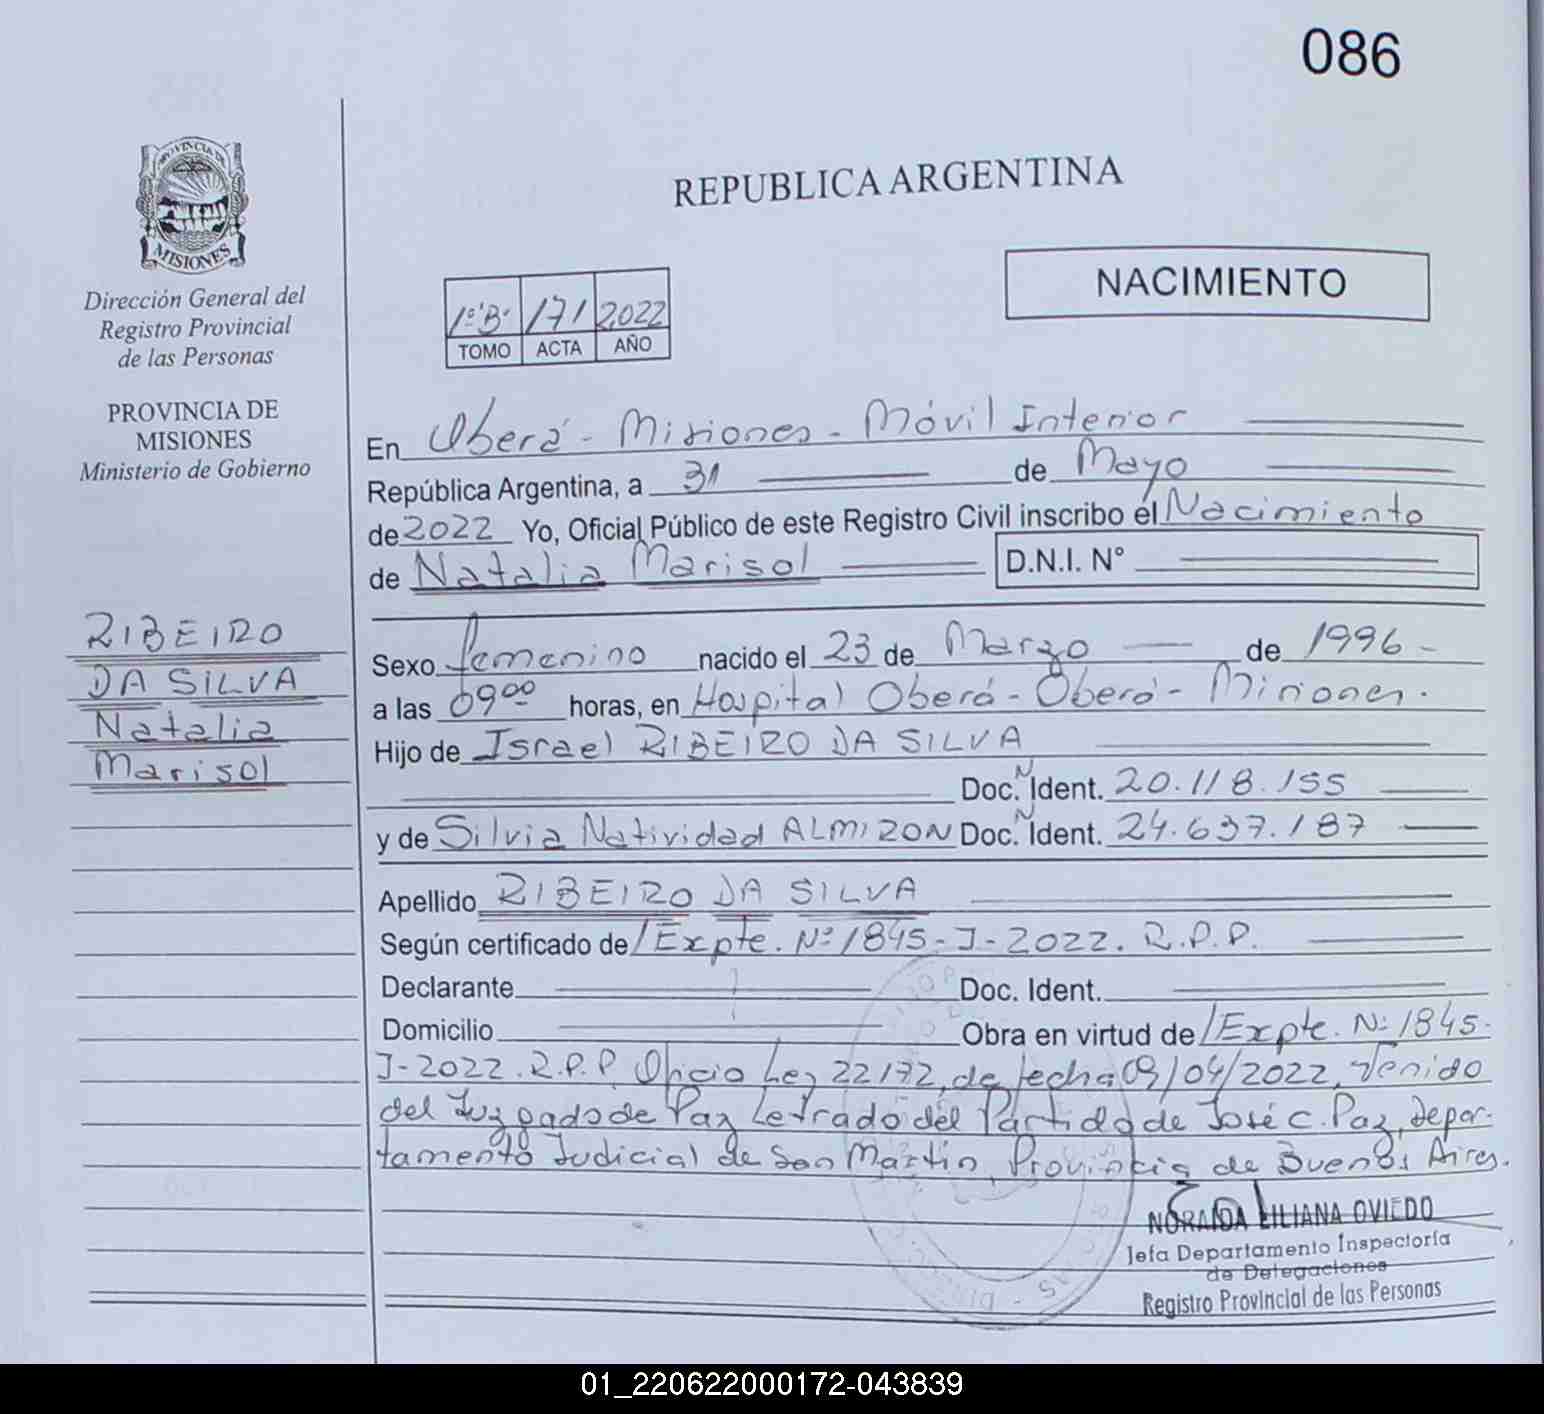 086
PROVINCIA DE
MISIONES
Dirección General del
Registro Provincial
de las Personas
PROVINCIA DE
MISIONES
Ministerio de Gobierno
RIBEIRO
DA SILVA
Natalia
Marisol
REPUBLICA ARGENTINA
NACIMIENTO
1º"B" 171 2022
TOMO ACTA AÑO
En Oberá - Misiones - Móvil Interior
República Argentina, a 31 de Mayo
de 2022 Yo, Oficial Público de este Registro Civil inscribo el Nacimiento
de Natalia Marisol D.N.I. N°
Sexo femenino nacido el 23 de Marzo de 1996 -
a las 09⁰⁰ horas, en Hospital Oberá - Oberá - Misiones.
Hijo de Israel RIBEIRO DA SILVA
Doc. N Ident. 20.118.155
y de Silvia Natividad ALMIRON Doc. N Ident. 24.637.187
Apellido RIBEIRO DA SILVA
Según certificado de Expte. Nº 1845-J-2022. R.P.P.
Declarante Doc. Ident.
Domicilio Obra en virtud de Expte. Nº 1845-
J-2022. R.P.P. Oficio Ley 22172, de fecha 09/04/2022, venido
del Juzgado de Paz Letrado del Partido de José C. Paz, Depar-
tamento Judicial de San Martín, Provincia de Buenos Aires.
NORAIDA LILIANA OVIEDO
Jefa Departamento Inspectoría
de Delegaciones
Registro Provincial de las Personas
01_220622000172-043839